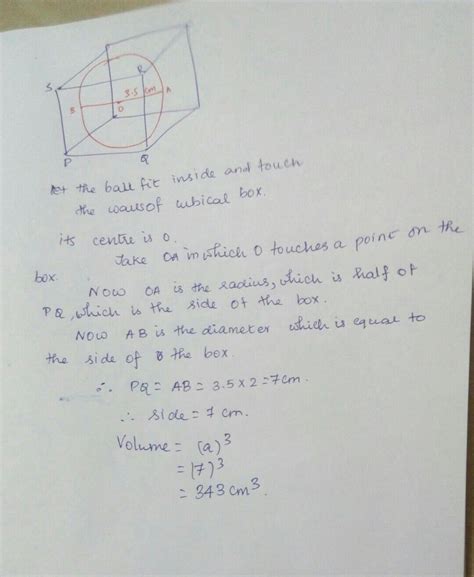 S
R
3.5 cm
B
A
O
P
Q
Let the ball fit inside and touch
the walls of cubical box.
its centre is O.
Take OA in which O touches a point on the
box.
Now OA is the radius, which is half of
PQ, which is the side of the box.
Now AB is the diameter which is equal to
the side of the box.
∴ PQ = AB = 3.5 x 2 = 7 cm.
∴ side = 7 cm.
Volume = (a)³
= (7)³
= 343 cm³.